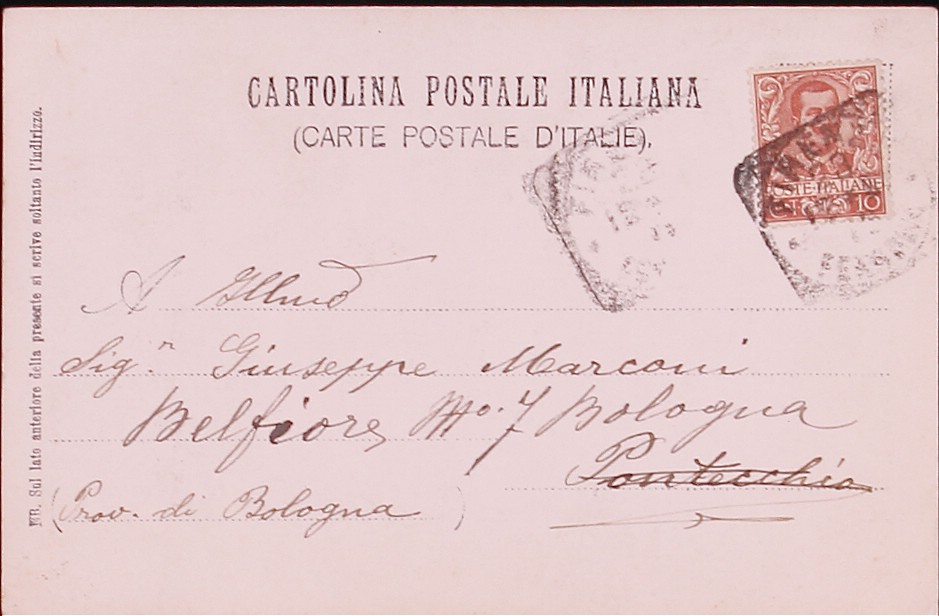 CARTOLINA POSTALE ITALIANA
(CARTE POSTALE D'ITALIE).
POSTE·ITALIANE
10
A Illmo
Sig.r Giuseppe Marconi
Belfiore No. 7 Bologna
Pontecchio
(Prov. di Bologna)
NB. Sul lato anteriore della presente si scrive soltanto l'indirizzo.